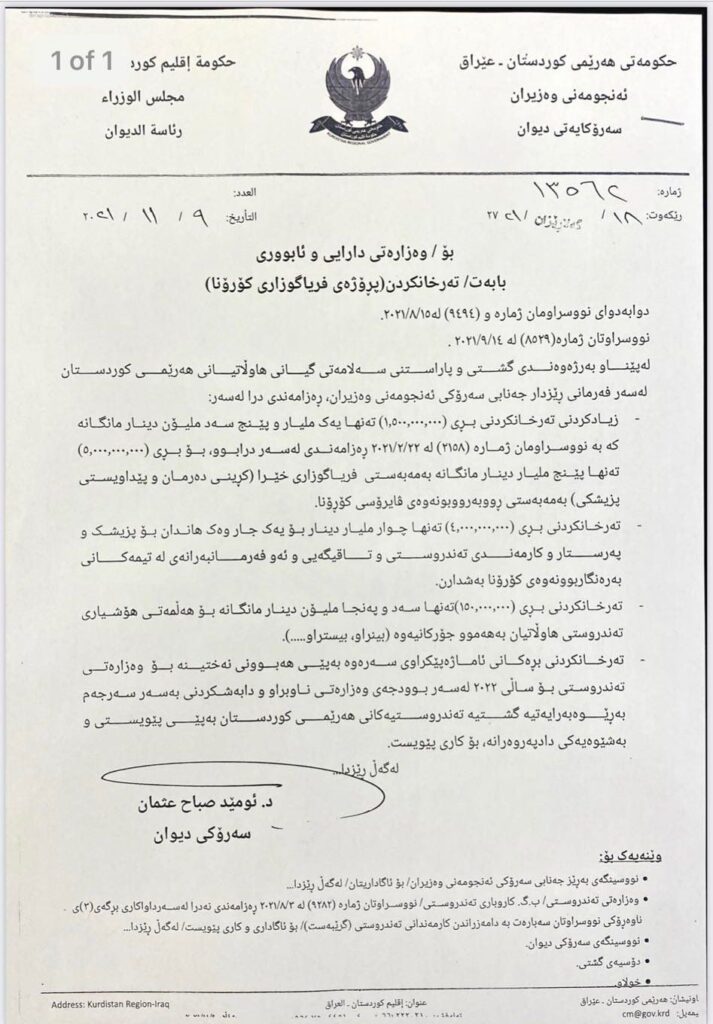 1 of 1
حكومة إقليم كورد
مجلس الوزراء
رئاسة الديوان
حکومەتی هەرێمی کوردستان ـ عێراق
ئەنجومەنی وەزیران
سەرۆکایەتی دیوان
KURDISTAN REGIONAL GOVERNMENT
ژمارە: ١٣٥٦٢
العدد:
ڕێکەوت: ١٨ / گەلاڕێزان / ٢٧٢١
التأريخ: ٩ / ١١ / ٢٠٢١
بۆ / وەزارەتی دارایی و ئابووری
بابەت/ تەرخانکردن(پرۆژەی فریاگوزاری کۆرۆنا)
دوابەدوای نووسراومان ژمارە و (٩٤٩٤) لە٢٠٢١/٨/١٥.
نووسراوتان ژمارە(٨٥٢٩) لە ٢٠٢١/٩/١٤ .
لەپێناو بەرژەوەندی گشتی و پاراستنی سەلامەتی گیانی هاوڵاتیانی هەرێمی کوردستان
لەسەر فەرمانی ڕێزدار جەنابی سەرۆکی ئەنجومەنی وەزیران، ڕەزامەندی درا لەسەر:
- زیادکردنی تەرخانکردنی بڕی (١,٥٠٠,٠٠٠,٠٠٠) تەنها یەک ملیار و پێنج سەد ملیۆن دینار مانگانە
کە بە نووسراومان ژمارە (٢١٥٨) لە ٢٠٢١/٢/٢٢ ڕەزامەندی لەسەر درابوو، بۆ بڕی (٥,٠٠٠,٠٠٠,٠٠٠)
تەنها پێنج ملیار دینار مانگانە بەمەبەستی فریاگوزاری خێرا (کڕینی دەرمان و پێداویستی
پزیشکی) بەمەبەستی ڕووبەڕووبونەوەی ڤایرۆسی کۆرۆنا.
- تەرخانکردنی بڕی (٤,٠٠٠,٠٠٠,٠٠٠) تەنها چوار ملیار دینار بۆ یەک جار وەک هاندان بۆ پزیشک و
پەرستار و کارمەندی تەندروستی و تاقیگەیی و ئەو فەرمانبەرانەی لە تیمەکانی
بەرەنگاربوونەوەی کۆرۆنا بەشدارن.
- تەرخانکردنی بڕی (١٥٠,٠٠٠,٠٠٠)تەنها سەد و پەنجا ملیۆن دینار مانگانە بۆ هەڵمەتی هۆشیاری
تەندروستی هاوڵاتیان بەهەموو جۆرکانیەوە (بینراو، بیستراو.....).
- تەرخانکردنی بڕەکانی ئاماژەپێکراوی سەرەوە بەپێی هەبوونی نەختینە بۆ وەزارەتی
تەندروستی بۆ ساڵی ٢٠٢٢ لەسەر بوودجەی وەزارەتی ناوبراو و دابەشکردنی بەسەر سەرجەم
بەڕێوەبەرایەتیە گشتیە تەندروستیەکانی هەرێمی کوردستان بەپێی پێویستی و
بەشێوەیەکی دادپەروەرانە، بۆ کاری پێویست.
لەگەڵ ڕێزدا...
د. ئومێد صباح عثمان
سەرۆکی دیوان
وێنەیەک بۆ:
• نووسینگەی بەڕێز جەنابی سەرۆکی ئەنجومەنی وەزیران/ بۆ ئاگاداریتان/ لەگەڵ ڕێزدا...
• وەزارەتی تەندروستی/ ب.گ. کاروباری تەندروستی/ نووسراوتان ژمارە (٩٢٨٢) لە ٢٠٢١/٨/٣ ڕەزامەندی نەدرا لەسەرداواکاری بڕگەی(٣)ی
ناوەڕۆکی نووسراوتان سەبارەت بە دامەزراندن کارمەندانی تەندروستی (گرێبەست)/ بۆ ئاگاداری و کاری پێویست/ لەگەڵ ڕێزدا...
• نووسینگەی سەرۆکی دیوان.
• دۆسیەی گشتی.
• خولاو.
Address: Kurdistan Region-Iraq
عنوان: إقليم كوردستان - العراق
اونیشان: هەرێمی کوردستان - عێراق
یمەیل: cm@gov.krd